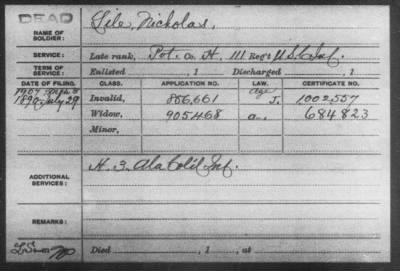 DEAD
NAME OF SOLDIER: File, Nicholas,
SERVICE: Late rank, Pvt. Co. H, 111 Reg't U.S.C. Inf.
TERM OF SERVICE: Enlisted , 1 Discharged , 1
DATE OF FILING. CLASS. APPLICATION NO. LAW. CERTIFICATE NO.
1907 Age
1890 July 29 Invalid, 856,661 J. 1002,557
Widow, 905468 a. 684,823
Minor,
ADDITIONAL SERVICES: H. 3. Ala Col'd Inf.
REMARKS:
Died , 1 , at